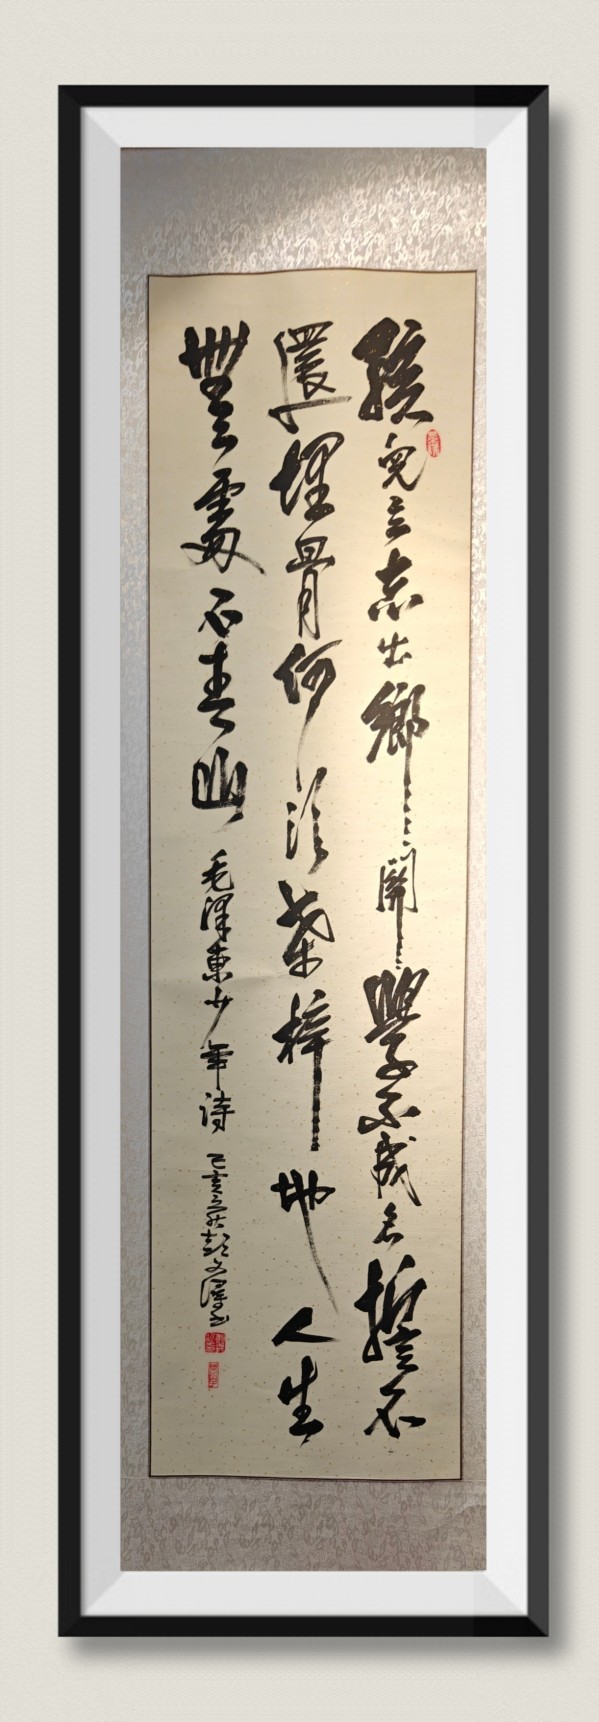 孩兒立志出鄉關學不成名誓不
還埋骨何須桑梓地人生
無處不青山毛澤東少年詩己亥之秋彭文澤书